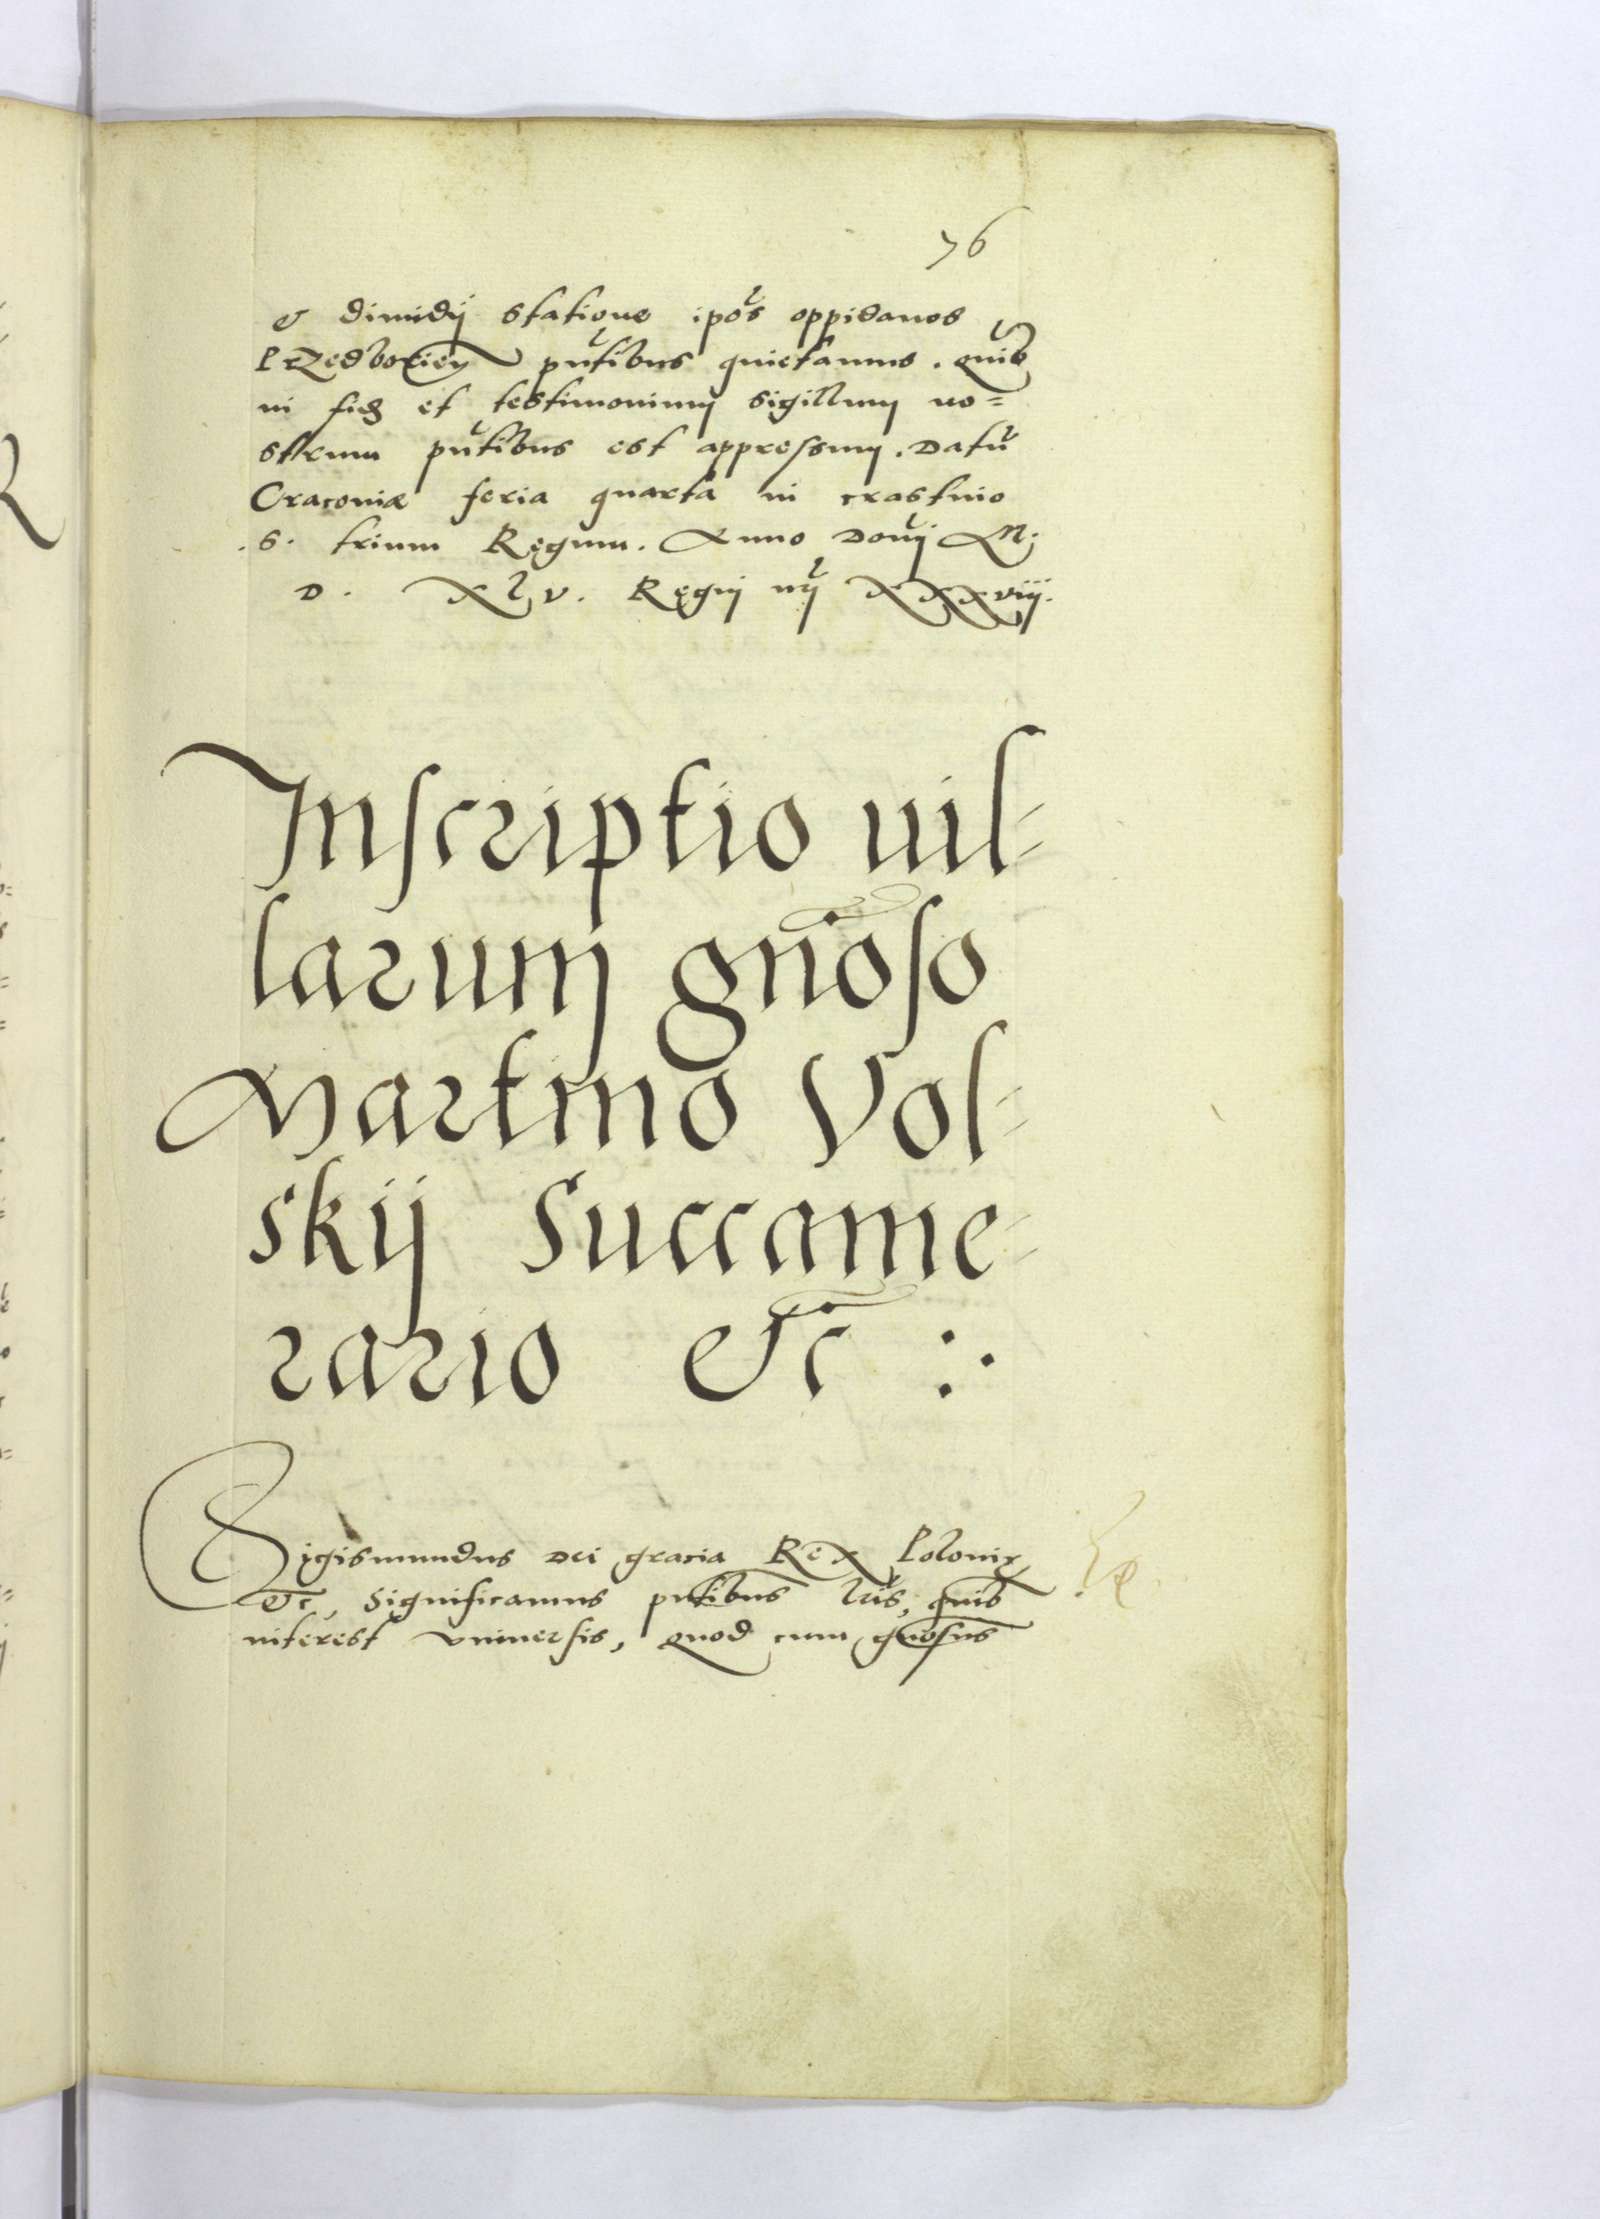 76
& dimidij statione ipōs oppidanos
Przedborien pn̄tibus quietamus. Quib
in fidē et testimonium sigillum no=
strum pn̄tibus est appressum. Datū
Craconiæ feria quarta in crastino
.S. trium Regum. Anno Domj M.
D. XLV. Regnj nrj XXXviij.
Inscriptio uil-
larum gn̄oso
Martino Vol-
skij Succame-
rario Etc̄ :·
Sigismundus Dei gracia Rex Poloniæ
Etc, Significamus pn̄tibus lrīs, quib
interest vniuersis, quod cum gn̄osus